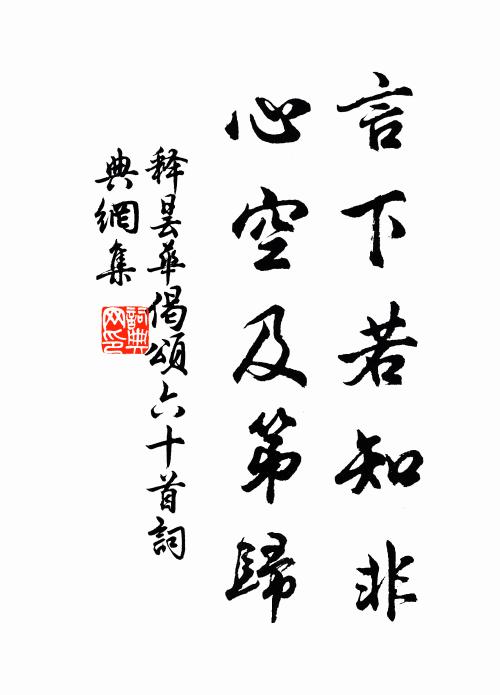 言下若知非
心空及第歸
释昙华偈頌六十首詞
典網集
詞典
网印